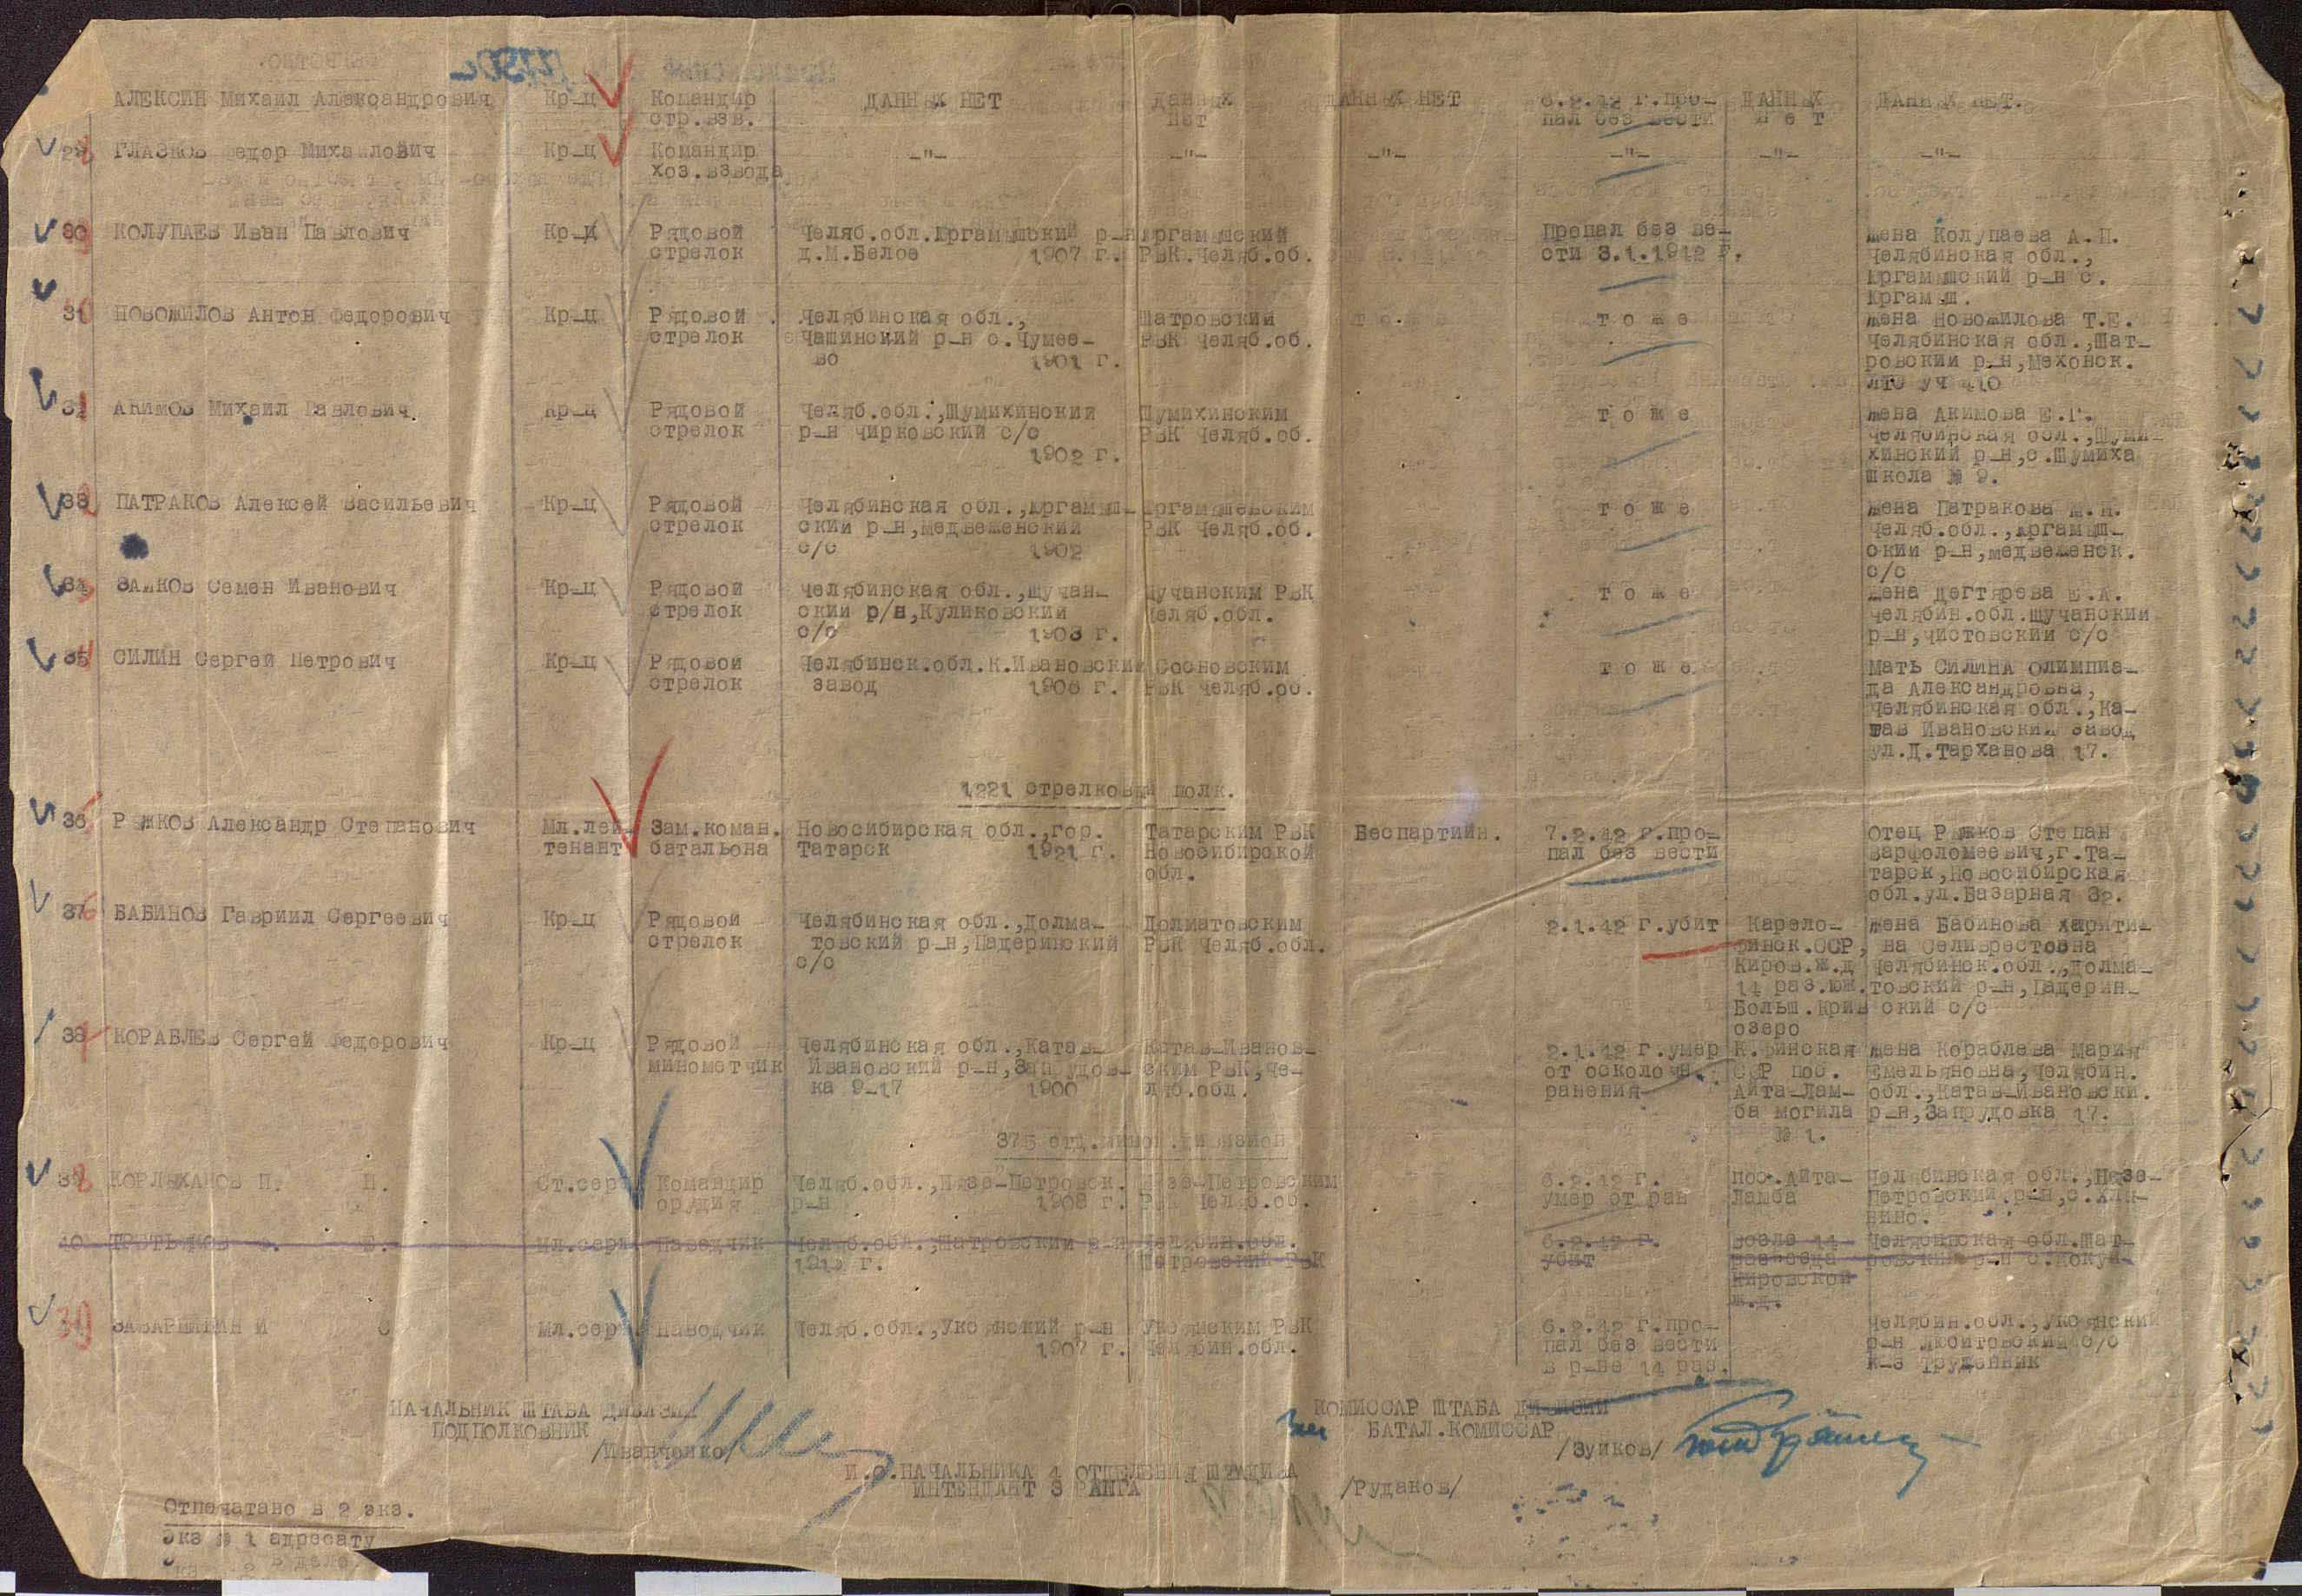 АЛЕКСИН Михаил Александрович Кр-ц Командир ДАННЫХ НЕТ Данных ДАННЫХ НЕТ 6.2.42 г.про- ДАННЫХ ДАННЫХ НЕТ.
стр.взв. нет пал без вести н е т
ГЛАЗКОВ Федор Михайлович Кр-ц Командир -"- -"- -"- -"- -"- -"-
хоз.взвода
30 КОЛУПАЕВ Иван Павлович Кр-ц Рядовой Челяб.обл.Юргамышский р-н Юргамышский Пропал без ве- жена Колупаева А.П.
стрелок д.М.Белое 1907 г. РВК Челяб.об. сти 3.1.1942 г. Челябинская обл.,
Юргамышский р-н с.
Юргамыш.
31 НОВОЖИЛОВ Антон Федорович Кр-ц Рядовой Челябинская обл., Шатровский т о ж е жена Новожилова Т.Е.
стрелок Чашинский р-н с.Чумее- РВК Челяб.об. Челябинская обл.,Шат-
во 1901 г. ровский р-н,Мехонск.
АКИМОВ Михаил Павлович Кр-ц Рядовой Челяб.обл.,Шумихинский Шумихинским т о ж е жена Акимова Е.Г.
стрелок р-н Чирковский с/с РВК Челяб.об. Челябинская обл.,Шуми-
1902 г. хинский р-н,с.Шумиха
школа № 9.
33 ПАТРАКОВ Алексей Васильевич Кр-ц Рядовой Челябинская обл.,Юргамыш- Юргамышевским т о ж е жена Патракова М.Н.
стрелок ский р-н,Медвеженский РВК Челяб.об. Челяб.обл.,Юргамыш-
с/с 1902 ский р-н,Медвеженск.
с/с
34 ЗАЙКОВ Семен Иванович Кр-ц Рядовой Челябинская обл.,Щучан- Щучанским РВК т о ж е жена Дегтярева Е.А.
стрелок ский р/н,Куликовский Челяб.обл. Челябин.обл.Щучанский
с/с 1903 г. р-н,Чистовский с/с
35 СИЛИН Сергей Петрович Кр-ц Рядовой Челябинск.обл.К.Ивановский Сосновским т о ж е Мать СИЛИНА Олимпиа-
стрелок завод 1906 г. РВК Челяб.об. да Александровна,
Челябинская обл.,Ка-
тав Ивановский завод
ул.Д.Тарханова 17.
1221 стрелковый полк.
36 РЫЖКОВ Александр Степанович Мл.лей- Зам.коман. Новосибирская обл.,гор. Татарским РВК Беспартийн. 7.2.42 г.про- Отец Рыжков Степан
тенант батальона Татарск 1921 г. Новосибирской пал без вести Варфоломеевич,г.Та-
обл. тарск,Новосибирская
обл.ул.Базарная 32.
37 БАБИНОВ Гавриил Сергеевич Кр-ц Рядовой Челябинская обл.,Долма- Долматовским 2.1.42 г.убит Карело- жена Бабинова Харити-
стрелок товский р-н,Падеринский РВК Челяб.обл. финск.ССР, на Селиврестовна
с/с Киров.ж.д Челябинск.обл.,Долма-
14 раз.юж. товский р-н,Падерин-
Больш.Крив ский с/с
озеро
38 КОРАБЛЕВ Сергей Федорович Кр-ц Рядовой Челябинская обл.,Катав- Катав-Иванов- 2.1.42 г.умер К.Финская жена Кораблева Мария
минометчик Ивановский р-н,Запрудов- ским РВК,Че- от осколочн. ССР пос. Емельяновна,Челябин.
ка 9-17 1900 ляб.обл. ранения Айта-Лам- обл.,Катав-Ивановски.
ба могила р-н,Запрудовка 17.
№ 1.
375 отд. дивизион
39 КОРЛЫХАНОВ П. П. Ст.сер Командир Челяб.обл.,Нязе-Петровск. Нязе-Петровским 6.2.42 г. пос.Айта- Челябинская обл.,Нязе-
орудия р-н 1908 г. РВК Челяб.об. умер от ран Ламба Петровский р-н,с.
40 ТРЕТЬЯКОВ Мл.серж Наводчик Челяб.обл.,Шатровский р-н Челябин.обл. 6.2.42 г. возле 14 Челябинская обл.Шат-
г. Шатровский РВК убит разъезда ровский р-н
Кировской
ж.д.
Мл.сер Наводчик Челяб.обл.,Уксянский р-н Уксянским РВК 6.2.42 г.про- Челябин.обл.,Уксянский
1907 г. Челябин.обл. пал без вести р-н с/с
в р-не 14 раз. к-з Труженник
НАЧАЛЬНИК ШТАБА ДИВИЗИИ КОМИССАР ШТАБА ДИВИЗИИ
ПОДПОЛКОВНИК БАТАЛ.КОМИССАР
/Иванченко/ /Зуйков/
И.О.НАЧАЛЬНИКА 4 ОТДЕЛЕНИЯ ШТАДИВА
ИНТЕНДАНТ 3 РАНГА /Рудаков/
Отпечатано в 2 экз.
Экз № 1 адресату